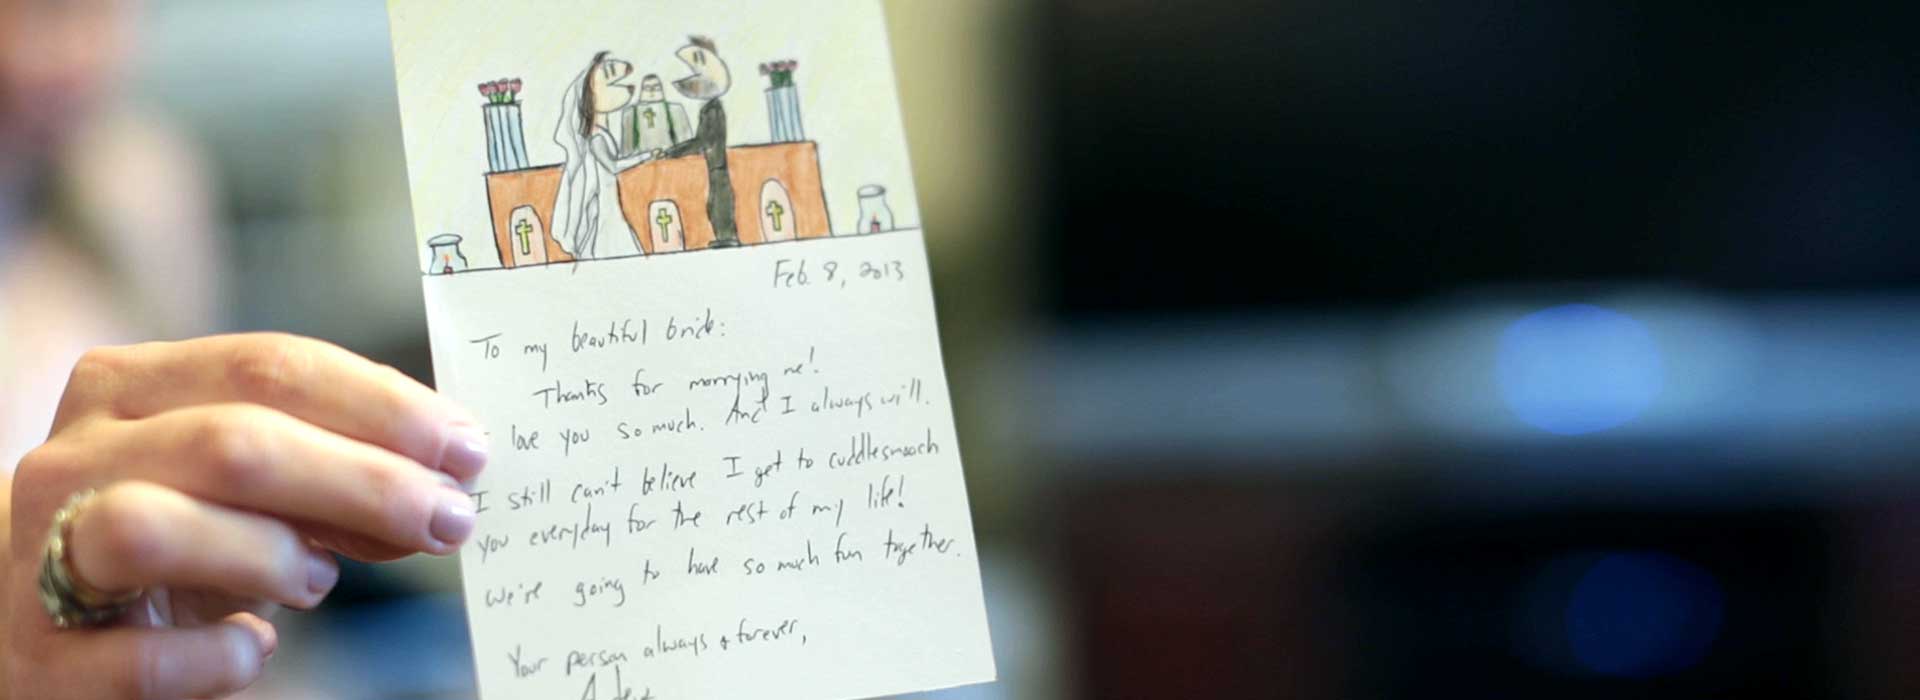 Feb. 8, 2013
To my beautiful bride:
Thanks for marrying me!
love you so much. And I always will.
I still can't believe I get to cuddlesmooch
you everyday for the rest of my life!
We're going to have so much fun together.
Your person always & forever,